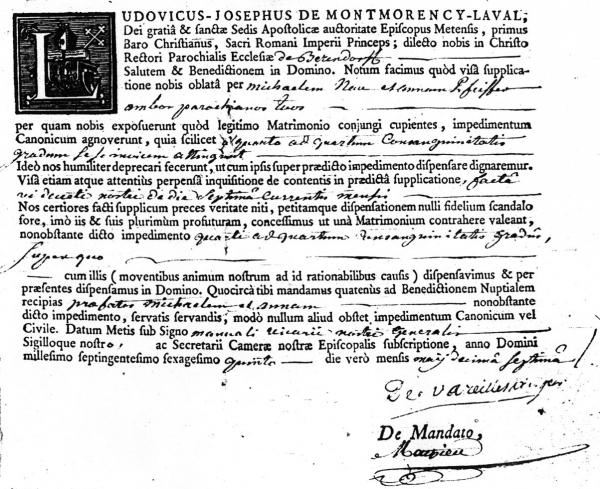 LUDOVICUS-JOSEPHUS DE MONTMORENCY-LAVAL;
Dei gratiâ & sanctæ Sedis Apostolicæ auctoritate Episcopus Metensis, primus
Baro Christianus, Sacri Romani Imperii Princeps; dilecto nobis in Christo
Rectori Parochialis Ecclesiæ de Berendorff
Salutem & Benedictionem in Domino. Notum facimus quòd visâ supplica-
tione nobis oblatâ per michaelem et annam Pfeiffer
ambos parochianos tuos
per quam nobis exposuerunt quòd legitimo Matrimonio conjungi cupientes, impedimentum
Canonicum agnoverunt, quia scilicet quarto ad quartum Consanguinitatis
gradum se se invicem attingunt
Ideò nos humiliter deprecari fecerunt, ut cum ipsis super prædicto impedimento dispensare dignaremur.
Visâ etiam atque attentiùs perpensâ inquisitione de contentis in prædictâ supplicatione, factâ
vi decreti nostri de die septimâ currentis mensis
Nos certiores facti supplicum preces veritate niti, petitamque dispensationem nulli fidelium scandalo
fore, imò iis & suis plurimùm profuturam, concessimus ut unà Matrimonium contrahere valeant,
nonobstante dicto impedimento quarti ad quartum consanguinitatis gradûs,
super quo
cum illis ( moventibus animum nostrum ad id rationabilibus causis ) dispensavimus & per
præsentes dispensamus in Domino. Quocircà tibi mandamus quatenùs ad Benedictionem Nuptialem
recipias præfatos michaelem et annam nonobstante
dicto impedimento, servatis servandis; modò nullum aliud obstet impedimentum Canonicum vel
Civile. Datum Metis sub Signo manuali vicarii nostri Generalis
Sigilloque nostro, ac Secretarii Cameræ nostræ Episcopalis subscriptione, anno Domini
millesimo septingentesimo sexagesimo quinto die verò mensis maij decimâ septimâ
De Mandato,